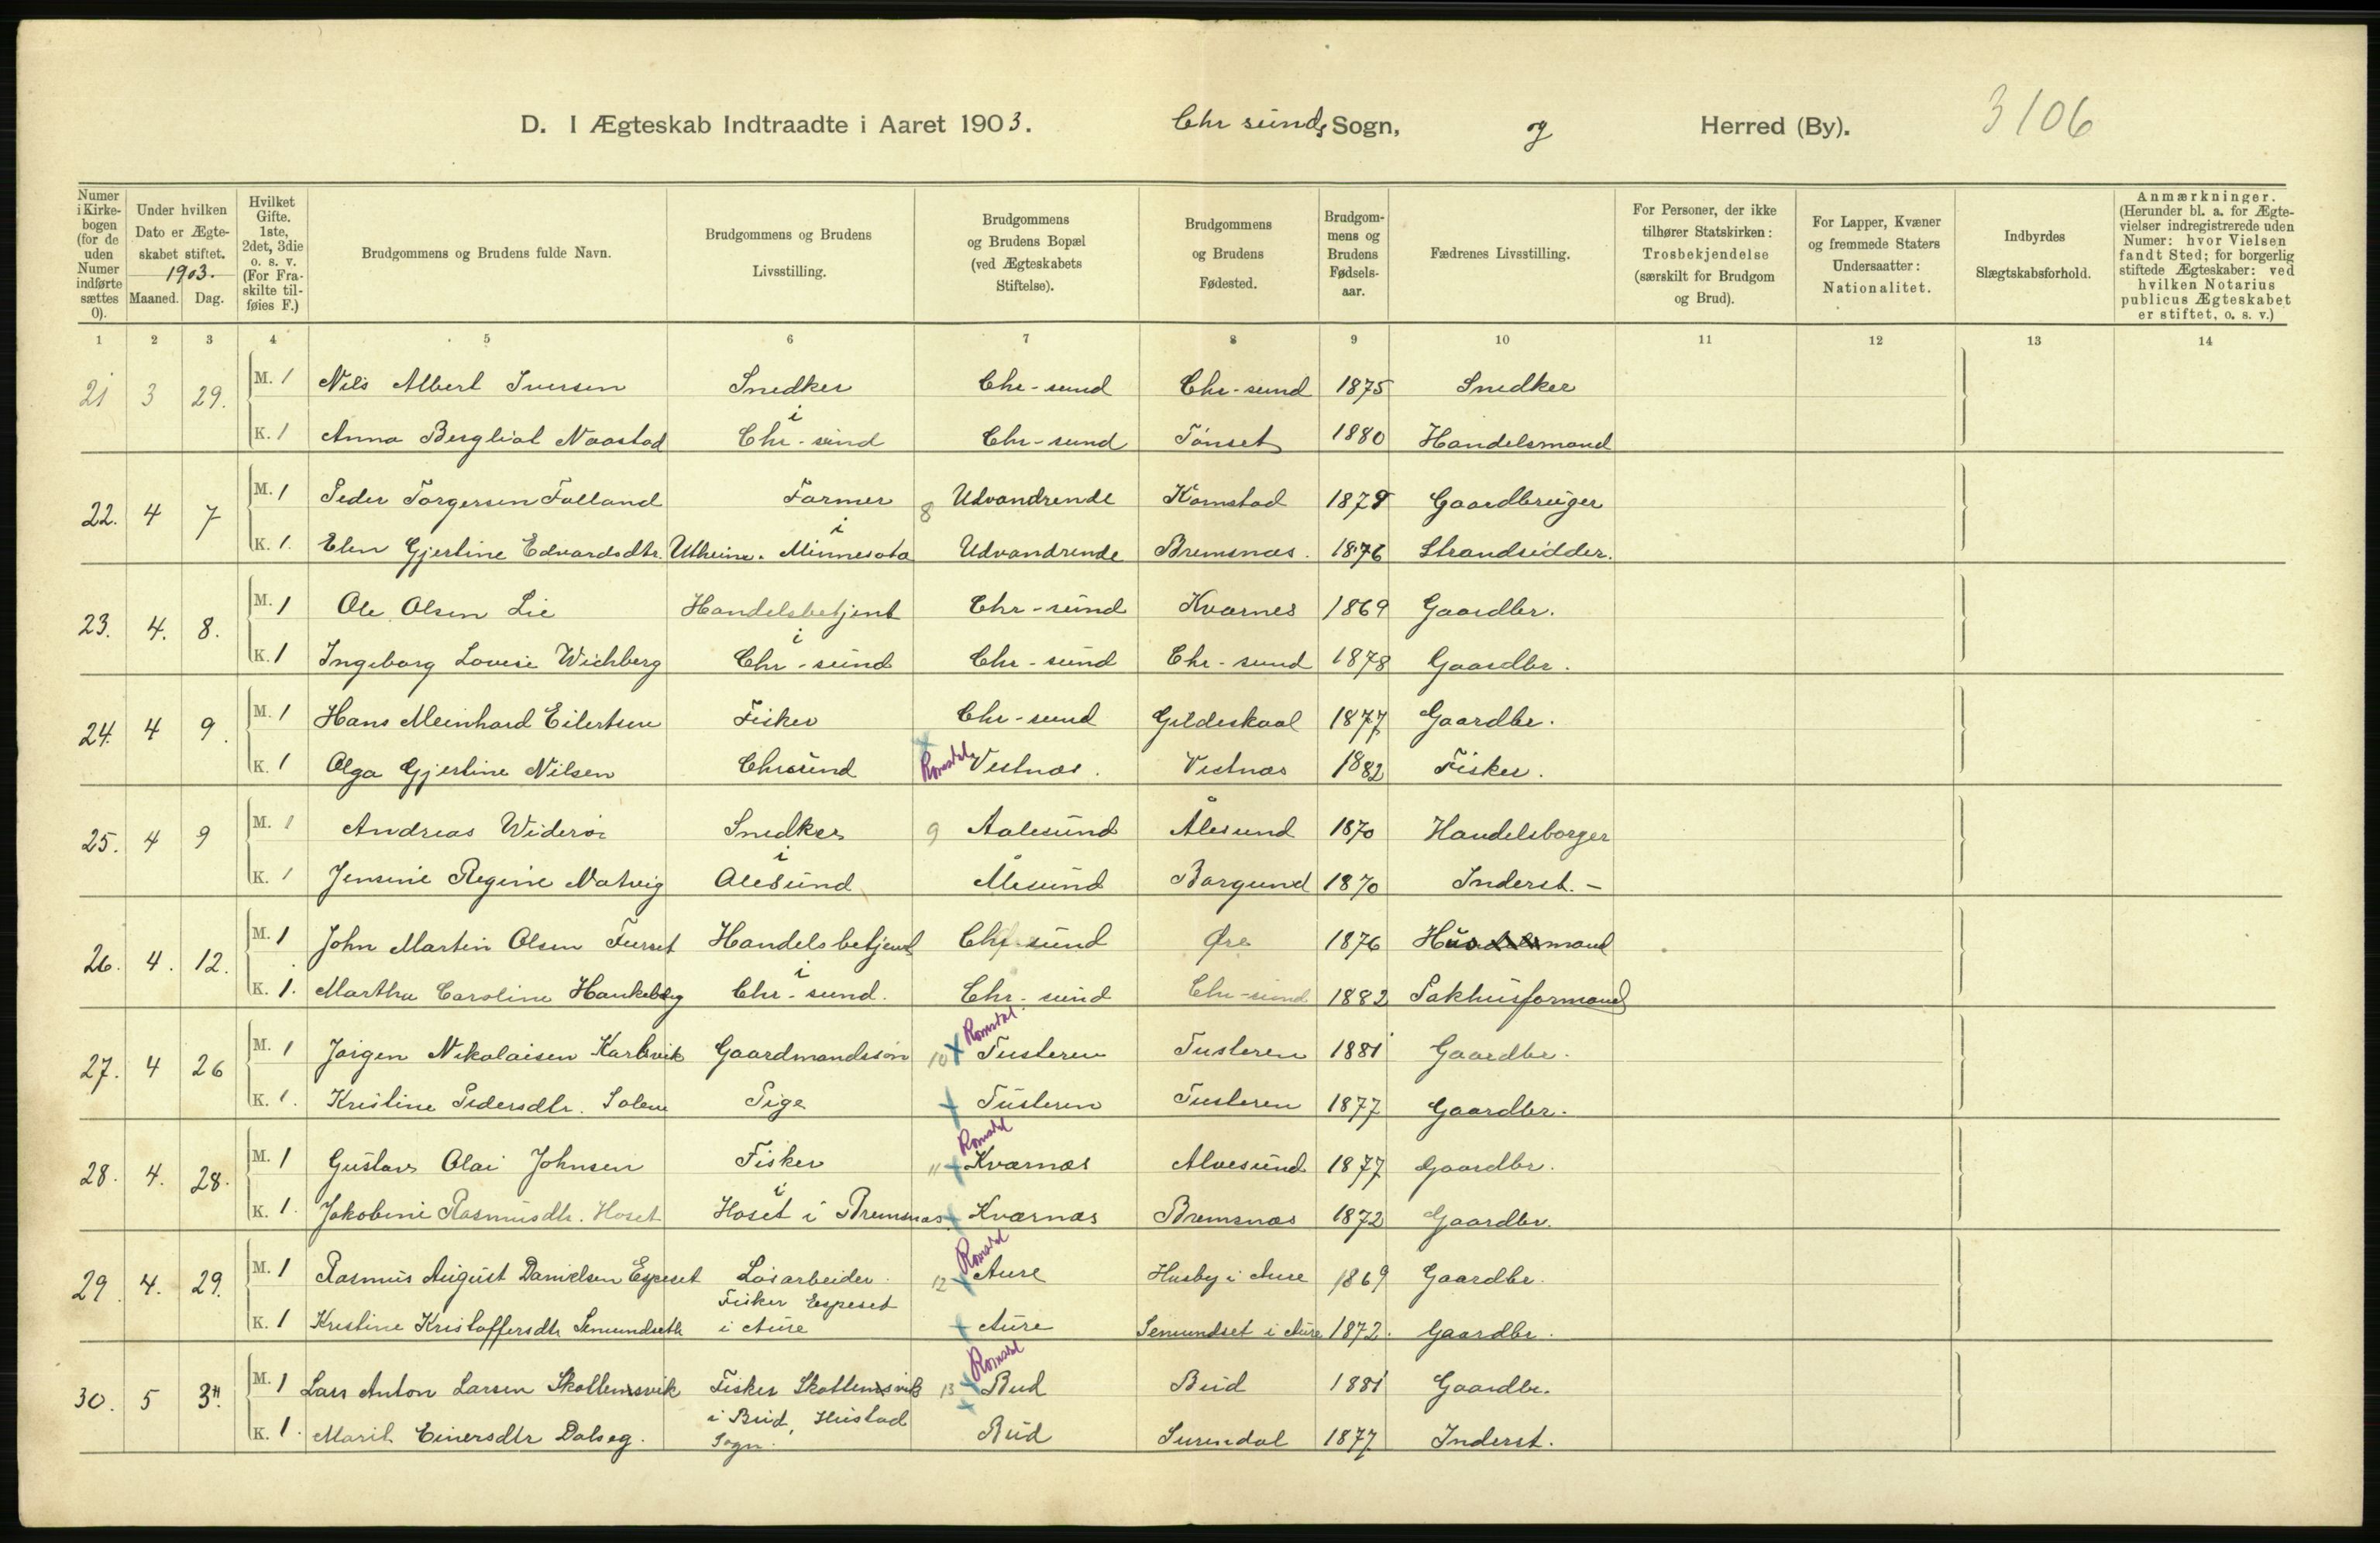 D. I Ægteskab Indtraadte i Aaret 1903. Chr sunds Sogn, og Herred (By). 3106
Numer i Kirkebogen (for de uden Numer indførte sættes 0).
Under hvilken Dato er Ægteskabet stiftet. 1903. Maaned. Dag.
Hvilket Gifte. 1ste, 2det, 3die o. s. v. (For Fraskilte tilføies F.)
Brudgommens og Brudens fulde Navn.
Brudgommens og Brudens Livsstilling.
Brudgommens og Brudens Bopæl (ved Ægteskabets Stiftelse).
Brudgommens og Brudens Fødested.
Brudgommens og Brudens Fødselsaar.
Fædrenes Livsstilling.
For Personer, der ikke tilhører Statskirken: Trosbekjendelse (særskilt for Brudgom og Brud).
For Lapper, Kvæner og fremmede Staters Undersaatter: Nationalitet.
Indbyrdes Slægtskabsforhold.
Anmærkninger. (Herunder bl. a. for Ægtevielser indregistrerede uden Numer: hvor Vielsen fandt Sted; for borgerlig stiftede Ægteskaber: ved hvilken Notarius publicus Ægteskabet er stiftet, o. s. v.)
1 2 3 4 5 6 7 8 9 10 11 12 13 14
21 3 29. M. 1 Nils Albert Iversen Snedker Chr-sund Chr-sund 1875 Snedker
K. 1 Anna Bergliot Naastad i Chr-sund Chr-sund Tönset 1880 Handelsmand
22. 4 7 M. 1 Peder Torgersen Folland Farmer 8 Udvandrende Kornstad 1879 Gaardbruger
K. 1. Elen Gjertine Edvardsdtr. Utheim. i Minnesota Udvandrende Bremsnæs. 1876 Strandsidder.
23. 4. 8. M. 1 Ole Olsen Lie Handelsbetjent Chr-sund Kvarnes 1869 Gaardbr.
K. 1 Ingeborg Lovise Wichberg i Chr-sund Chr-sund Chr-sund 1878 Gaardbr.
24. 4 9. M. 1 Hans Meinhard Eilertsen Fisker Chr-sund Gildeskaal 1877 Gaardbr.
K. 1 Olga Gjertine Nilsen Chrsund Romsdal Vestnæs. Vestnæs 1882 Fisker.
25. 4 9 M. 1 Andreas Wideröe Snedker 9 Aalesund Ålesund 1870 Handelsborger
K. 1 Jensine Regine Natvig i Ålesund Ålesund Borgund 1870 Inderst. -
26. 4. 12. M. 1 John Martin Olsen Furset Handelsbetjent Chr sund Øre 1876 Husmand
K. 1. Martha Caroline Haukeberg i Chr-sund. Chr-sund Chr-sund 1882 Pakhusformand
27. 4 26 M. 1 Jörgen Nikolaisen Karlsvik Gaardmandssön 10 X Romsdal Tusteren Tusteren 1881 Gaardbr.
K. 1. Kristine Pedersdtr. Solem Pige Tusteren Tusteren 1877 Gaardbr.
28. 4. 28. M. 1 Gustav Olai Johnsen Fisker 11 Romsdal Kvarnæs Alvesund 1877 Gaardbr.
K. 1. Jakobine Rasmusdtr. Hoset i Hoset i Bremsnæs. Kvarnæs Bremsnæs 1872 Gaardbr.
29. 4. 29. M. 1 Rasmus August Danielsen Espeset Lösarbeider. 12 Romsdal Aure Husby i Aure 1869 Gaardbr.
Fisker Espeset
K. 1 Kristine Kristoffersdtr Semundseth i Aure Aure Semundset i Aure 1872. Gaardbr.
30. 5 3. M. 1 Lars Anton Larsen Skottensvik Fisker Skottensvik 13 Romsdal Bud Bud 1881 Gaardbr.
i Bud, Hustad
K. 1. Marit Einersdtr Dalseg. Sogn. Bud Surendal 1877 Inderst.